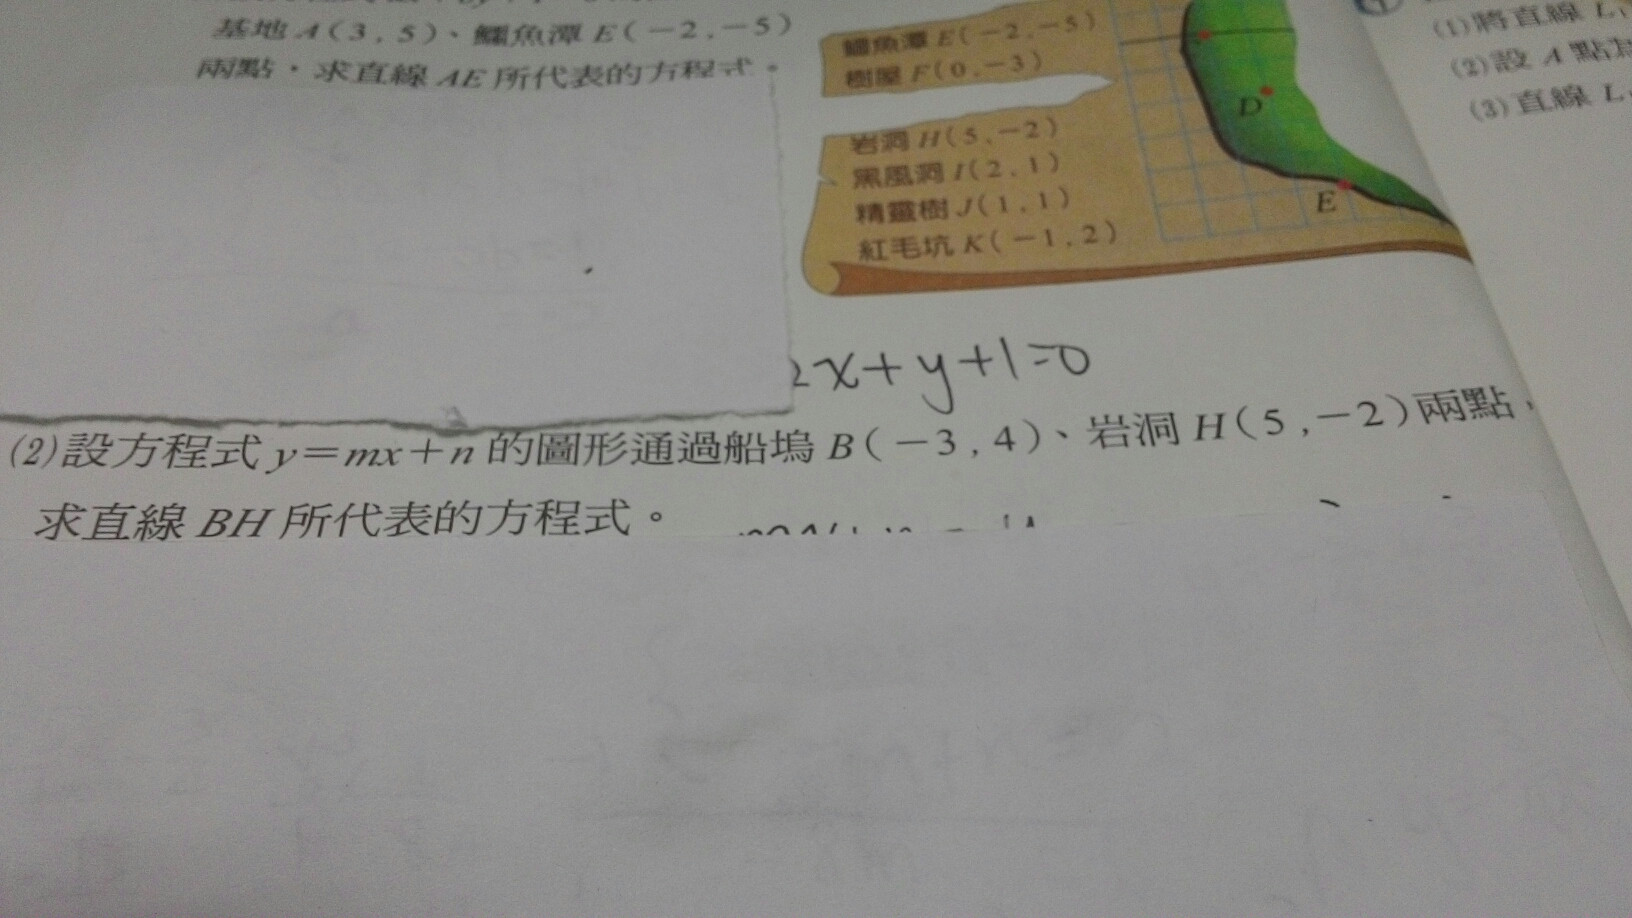 基地 A(3,5)、鱷魚潭 E(-2,-5)
兩點,求直線 AE 所代表的方程式。
鱷魚潭 E(-2,-5)
樹屋 F(0,-3)
岩洞 H(5,-2)
黑風洞 I(2,1)
精靈樹 J(1,1)
紅毛坑 K(-1,2)
D
E
(1)將直線 L
(2)設 A 點
(3)直線 L
2x+y+1=0
(2)設方程式 y=mx+n 的圖形通過船塢 B(-3,4)、岩洞 H(5,-2)兩點,
求直線 BH 所代表的方程式。